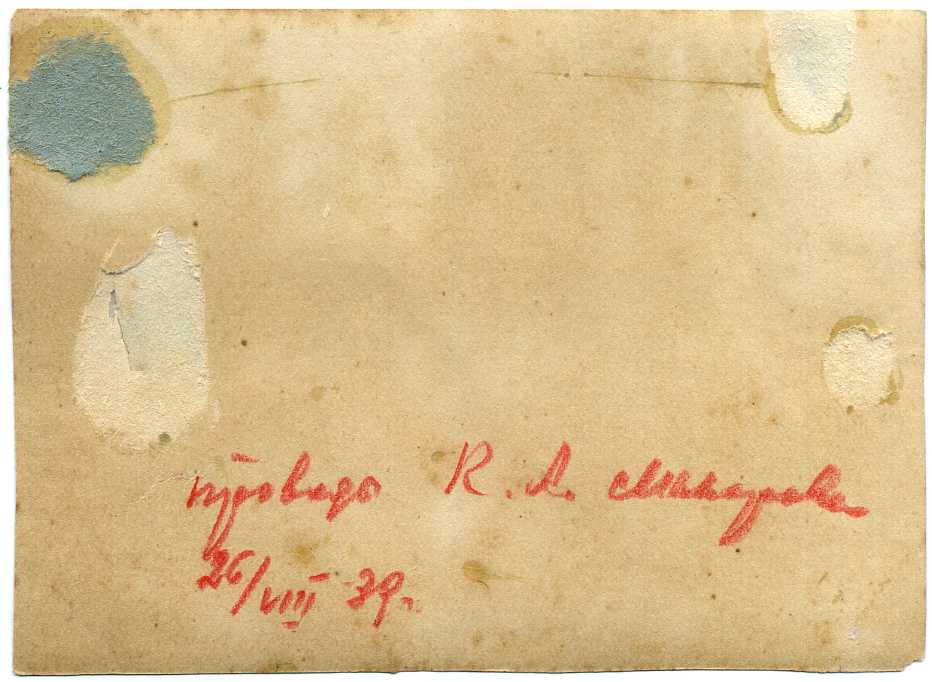 проводы К. А. Макарова
26/VIII 39.